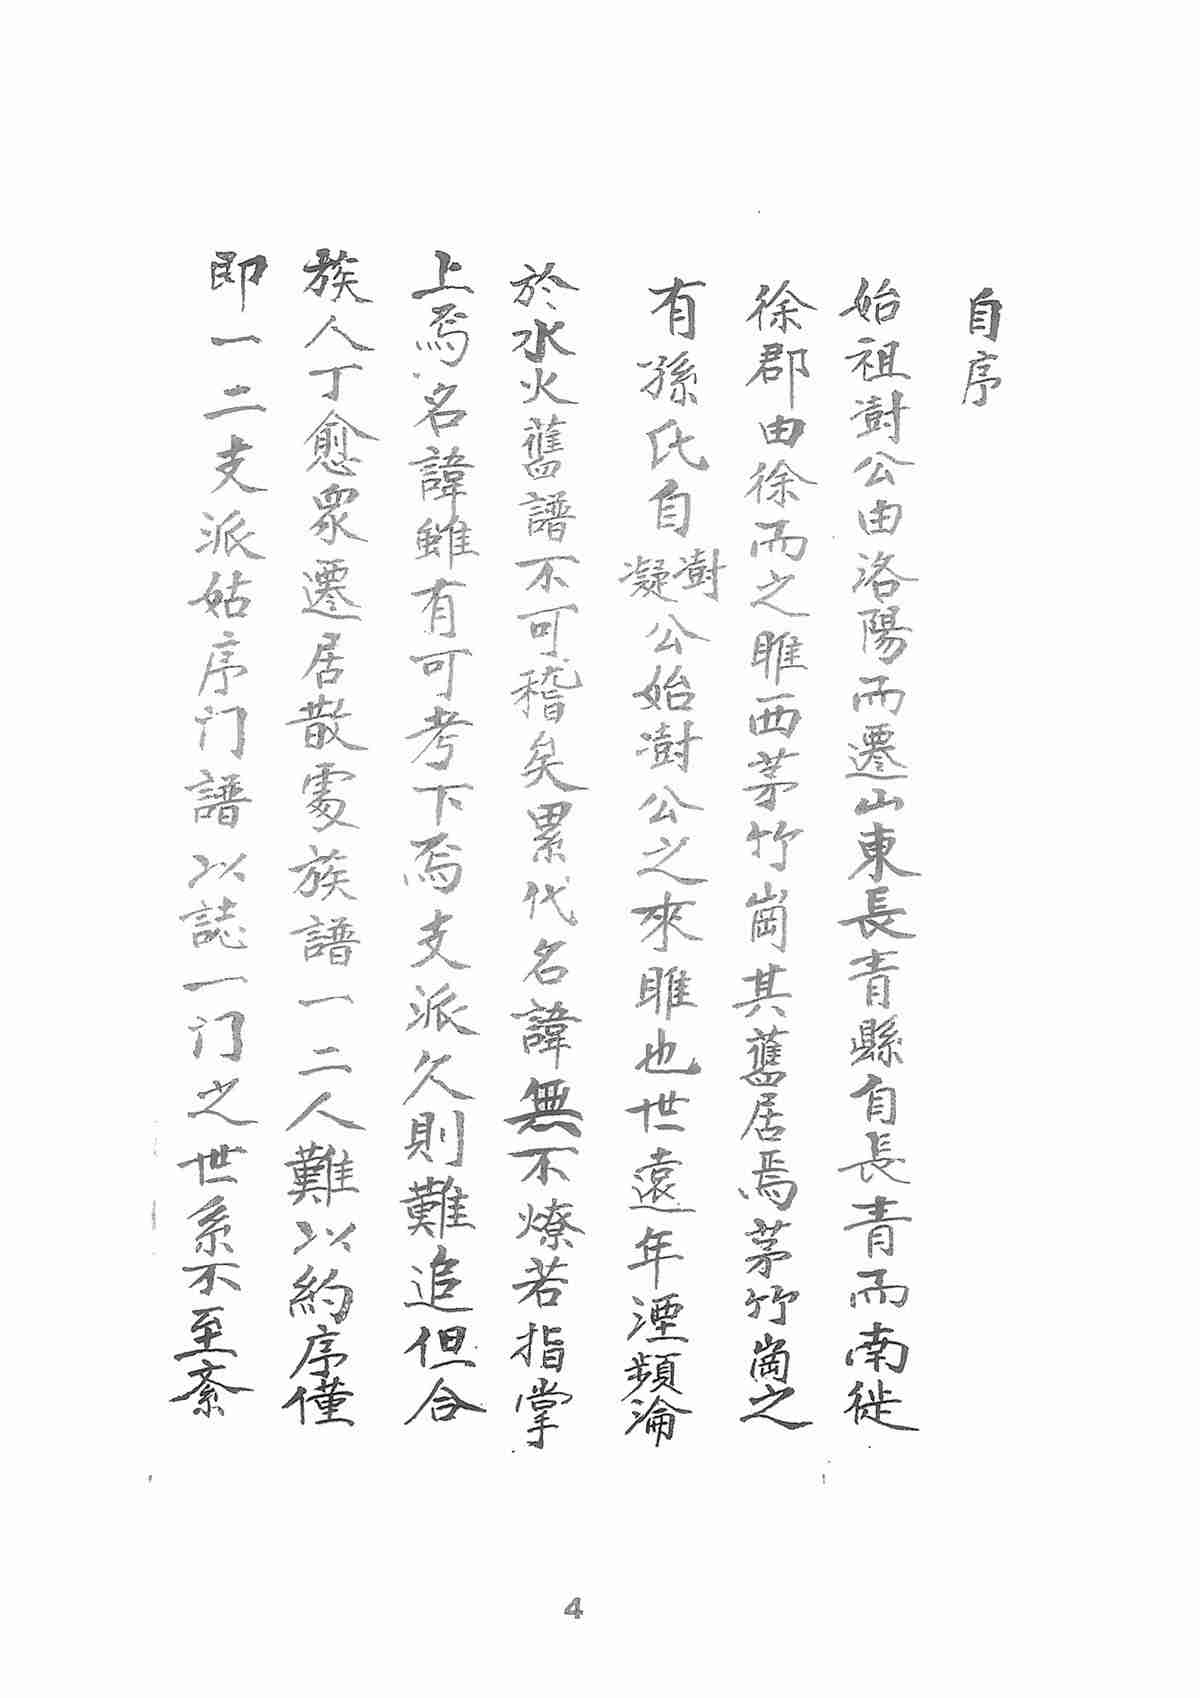 自序
始祖澍公由洛陽而遷山東長青縣自長青而南徙
徐郡由徐而之睢西茅竹崗其舊居焉茅竹崗之
有孫氏自澍凝公始澍公之來睢也世遠年湮頻淪
於水火舊譜不可稽矣累代名諱無不燎若指掌
上焉名諱雖有可考下焉支派久則難追但合
族人丁愈衆遷居散處族譜一二人難以約序僅
即一二支派姑序门譜以誌一门之世系不至紊
4